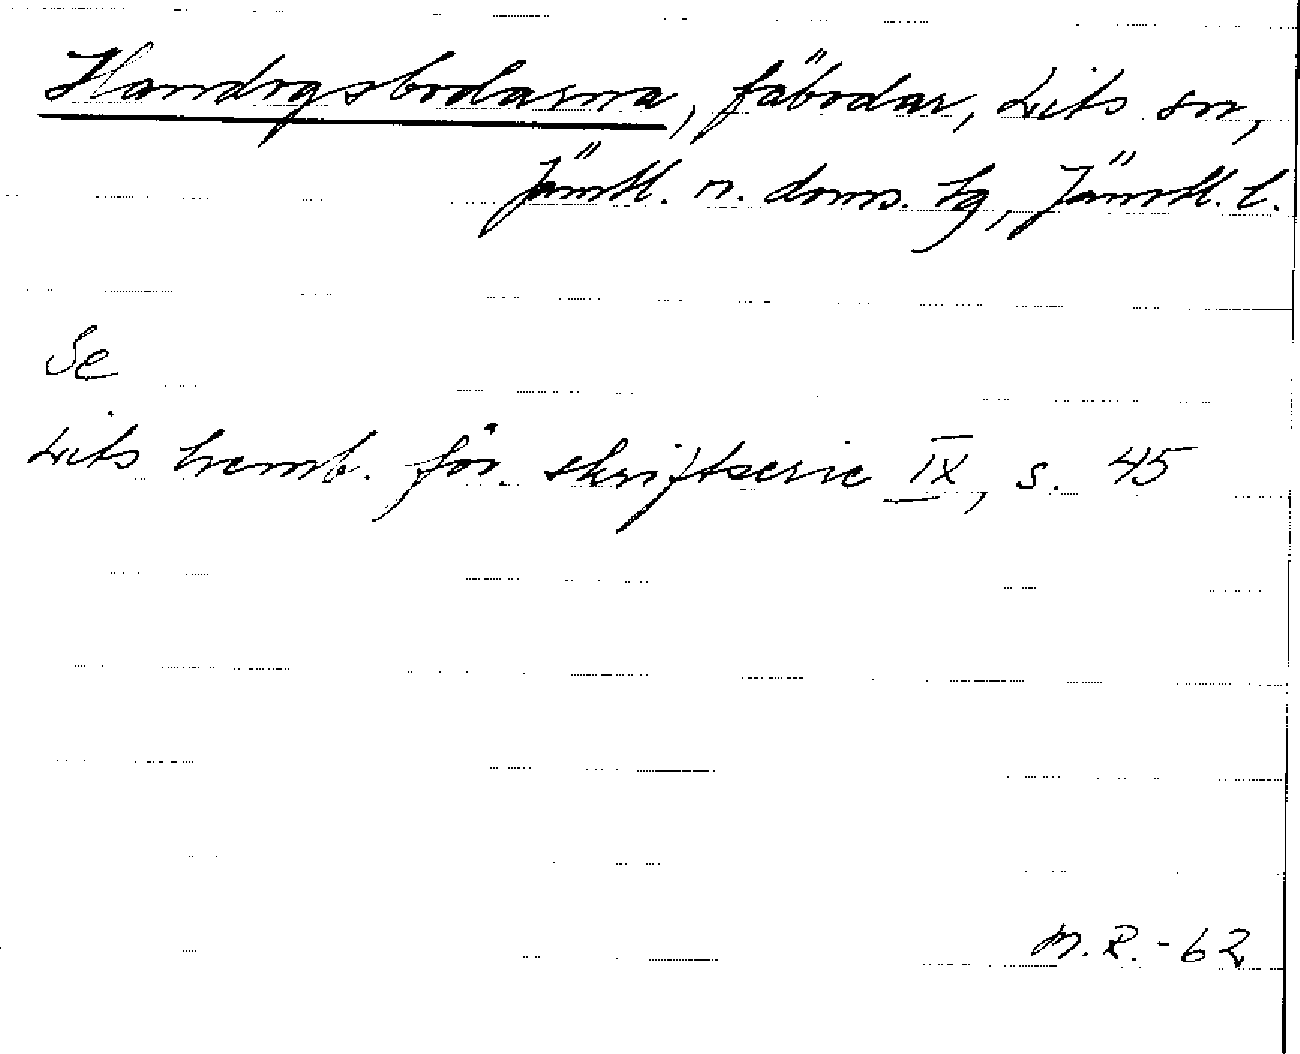 Handogsbodarna, fäbodar, Lits sn,
Jämtl. n. doms. tg, Jämtl. l.
Se
Lits hemb. för. skriftserie IX, s. 45
M.R. -62